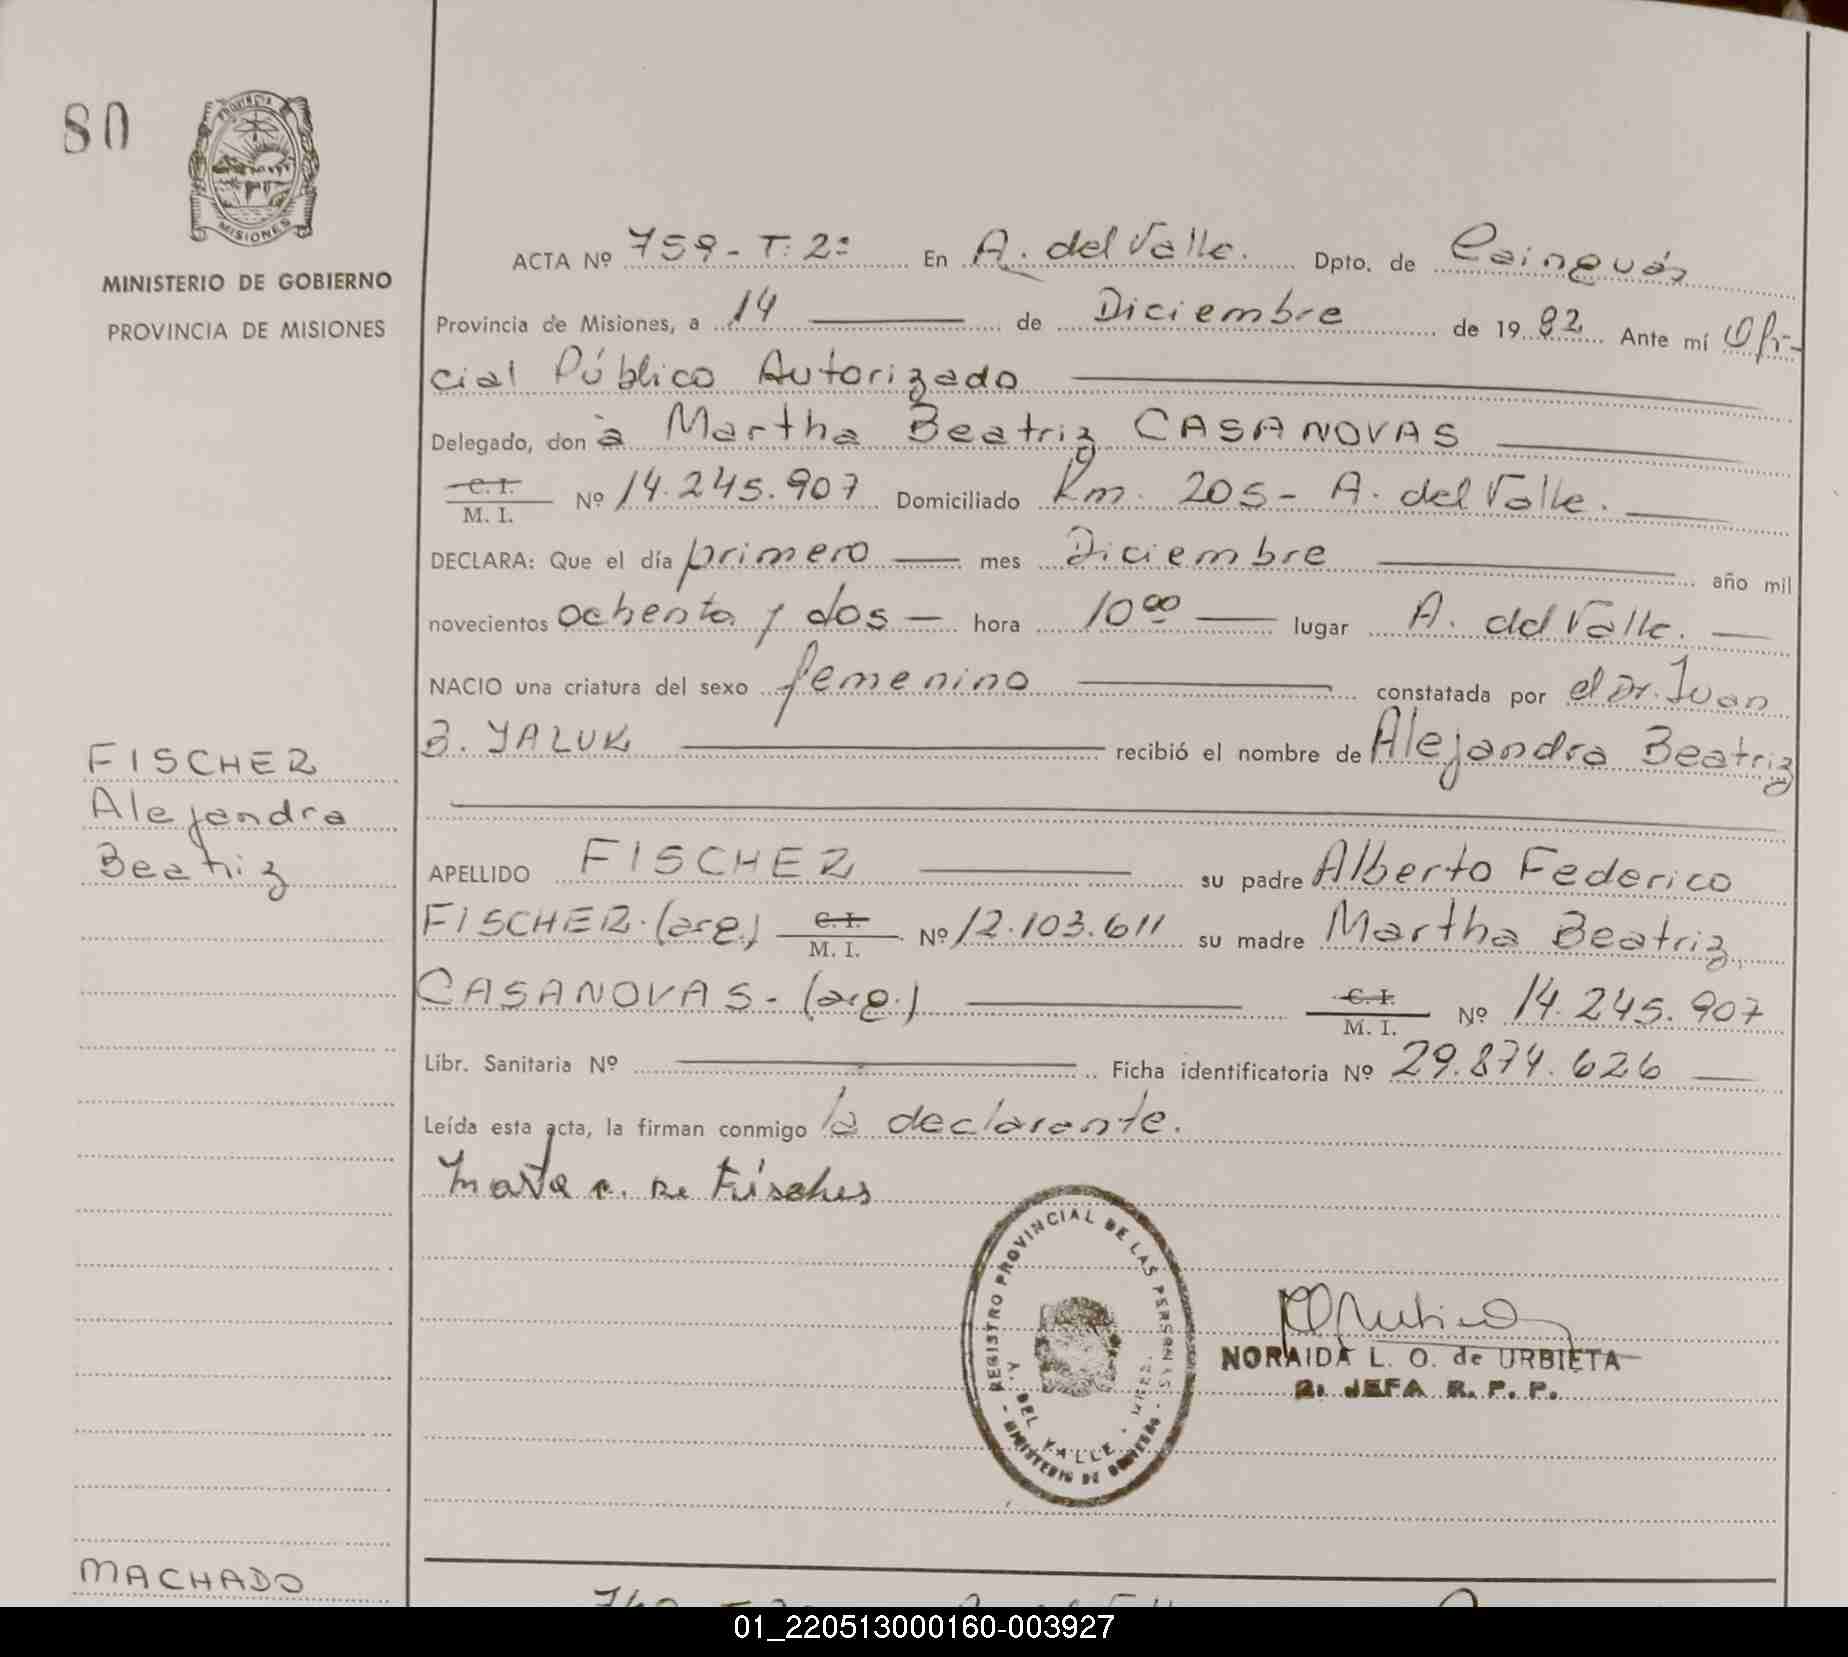 80
PROVINCIA
MISIONES
MINISTERIO DE GOBIERNO
PROVINCIA DE MISIONES
ACTA Nº 759 - T: 2º En A. del Valle. Dpto. de Cainguás
Provincia de Misiones, a 14 de Diciembre de 1982 Ante mí Ofi-
cial Público Autorizado
Delegado, don a Martha Beatriz CASANOVAS
C. I.
M. I. Nº 14.245.907 Domiciliado Km. 205 - A. del Valle.
DECLARA: Que el día primero mes Diciembre año mil
novecientos ochenta y dos hora 10⁰⁰ lugar A. del Valle.
NACIO una criatura del sexo femenino constatada por el Dr. Juan
B. YALUK recibió el nombre de Alejandra Beatriz
FISCHER
Alejandra
Beatriz
APELLIDO FISCHER su padre Alberto Federico
FISCHER. (arg.) C. I. M. I. Nº 12.103.611 su madre Martha Beatriz
CASANOVAS - (arg.) C. I. M. I. Nº 14.245.907
Libr. Sanitaria Nº Ficha identificatoria Nº 29.874.626
Leída esta acta, la firman conmigo la declarante.
REGISTRO PROVINCIAL DE LAS PERSONAS
DEL VALLE
MINISTERIO DE GOBIERNO
NORAIDA L. O. de URBIETA
2. JEFA R. P. P.
MACHADO
01_220513000160-003927